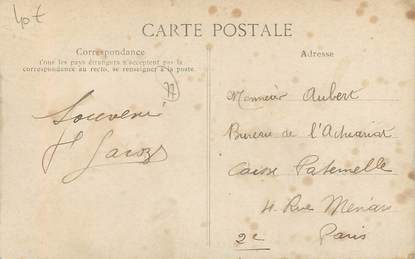 Lot
CARTE POSTALE
Correspondance
Tous les pays étrangers n'acceptent pas la
correspondance au recto, se renseigner à la poste.
Adresse
Souvenir
Monsieur Aubert
Bureau de l'Actuariat
Caisse Paternelle
4 Rue Menars
2e Paris